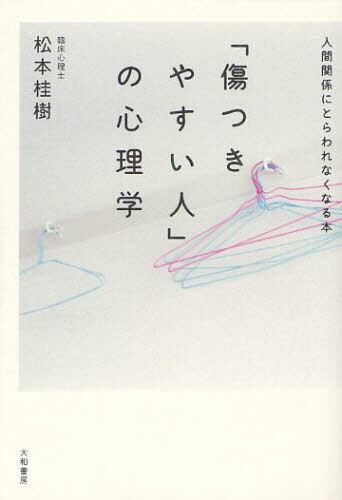 人間関係にとらわれなくなる本
「傷つき
やすい人」
の心理学
臨床心理士
松本桂樹
大和書房